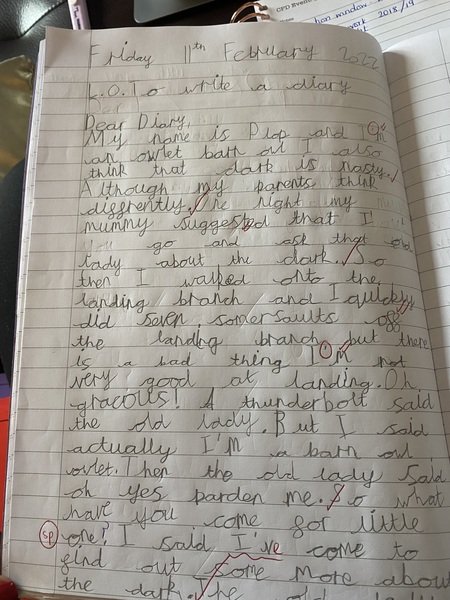 CPD Event
Notes
2018/19
Friday 11th February 2022
L.O. To write a diary
Dear Diary,
My name is Plop and I'm
an owlet bath owl I also
think that dark is nasty.
Although my parents think
diffrently. One night my
mummy suggested that I
go and ask that old
lady about the dark. So
then I walked onto the
landing branch and I quickly
did seven somersaults off
the landing branch but there
is a bad thing I'm not
very good at landing. Oh
gracous! A thunderbolt said
the old lady. But I said
actually I'm a barn owl
owlet. Then the old lady said
oh yes parden me. So what
have you come for little
sp one? I said I've come to
find out some more about
the dark. The old lady